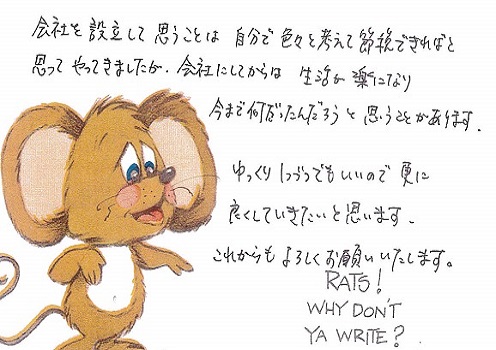 会社を設立して思うことは 自分で色々と考えて節税できればと
思ってやってきましたが、会社にしてからは 生活が楽になり
今まで何だったんだろうと思うことがあります。
ゆっくり1つづつでもいいので更に
良くしていきたいと思います。
これからもよろしくお願いいたします。
RATS!
WHY DON'T
YA WRITE?